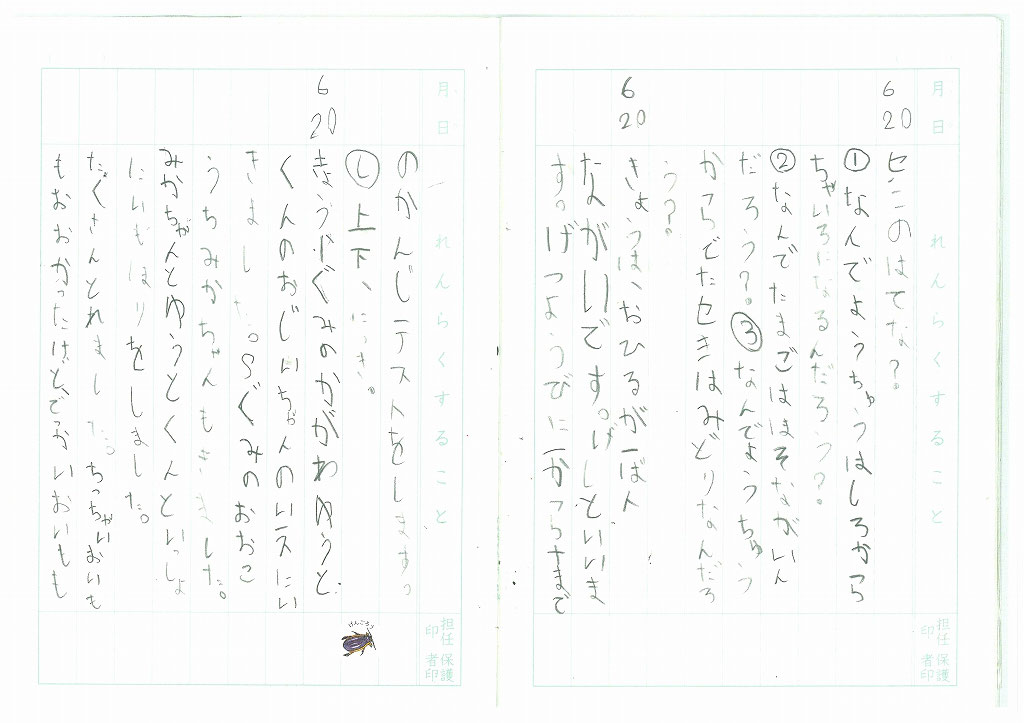 月日 れんらくすること 担任印 保護者印
6 20 セニのはてな?。
①なんでようちゅうはしろから
ちゃいろになるんだろう?。
②なんでたまごはほそながいん
だろう?。③なんでようちゅう
からでたセきはみどりなんだろ
う?。
6 20 きょうは、おひるが一ばん
ながいです。げしといいま
す。げつようびに一から十まで
月日 れんらくすること 担任印 保護者印
のかんじテストをします。
し 上下、にっき。
6 20 きょうぐみのかがわゆうと
くんのおじいちゃんのいえにい
きました。9ぐみのおおこ
うちみかちゃんもきました。
みかちゃんとゆうとくんといっしょ
にいもほりをしました。
たくさんとれました。ちっちゃいおいも
もおおかったけど、でかいおいもも
げんごろう